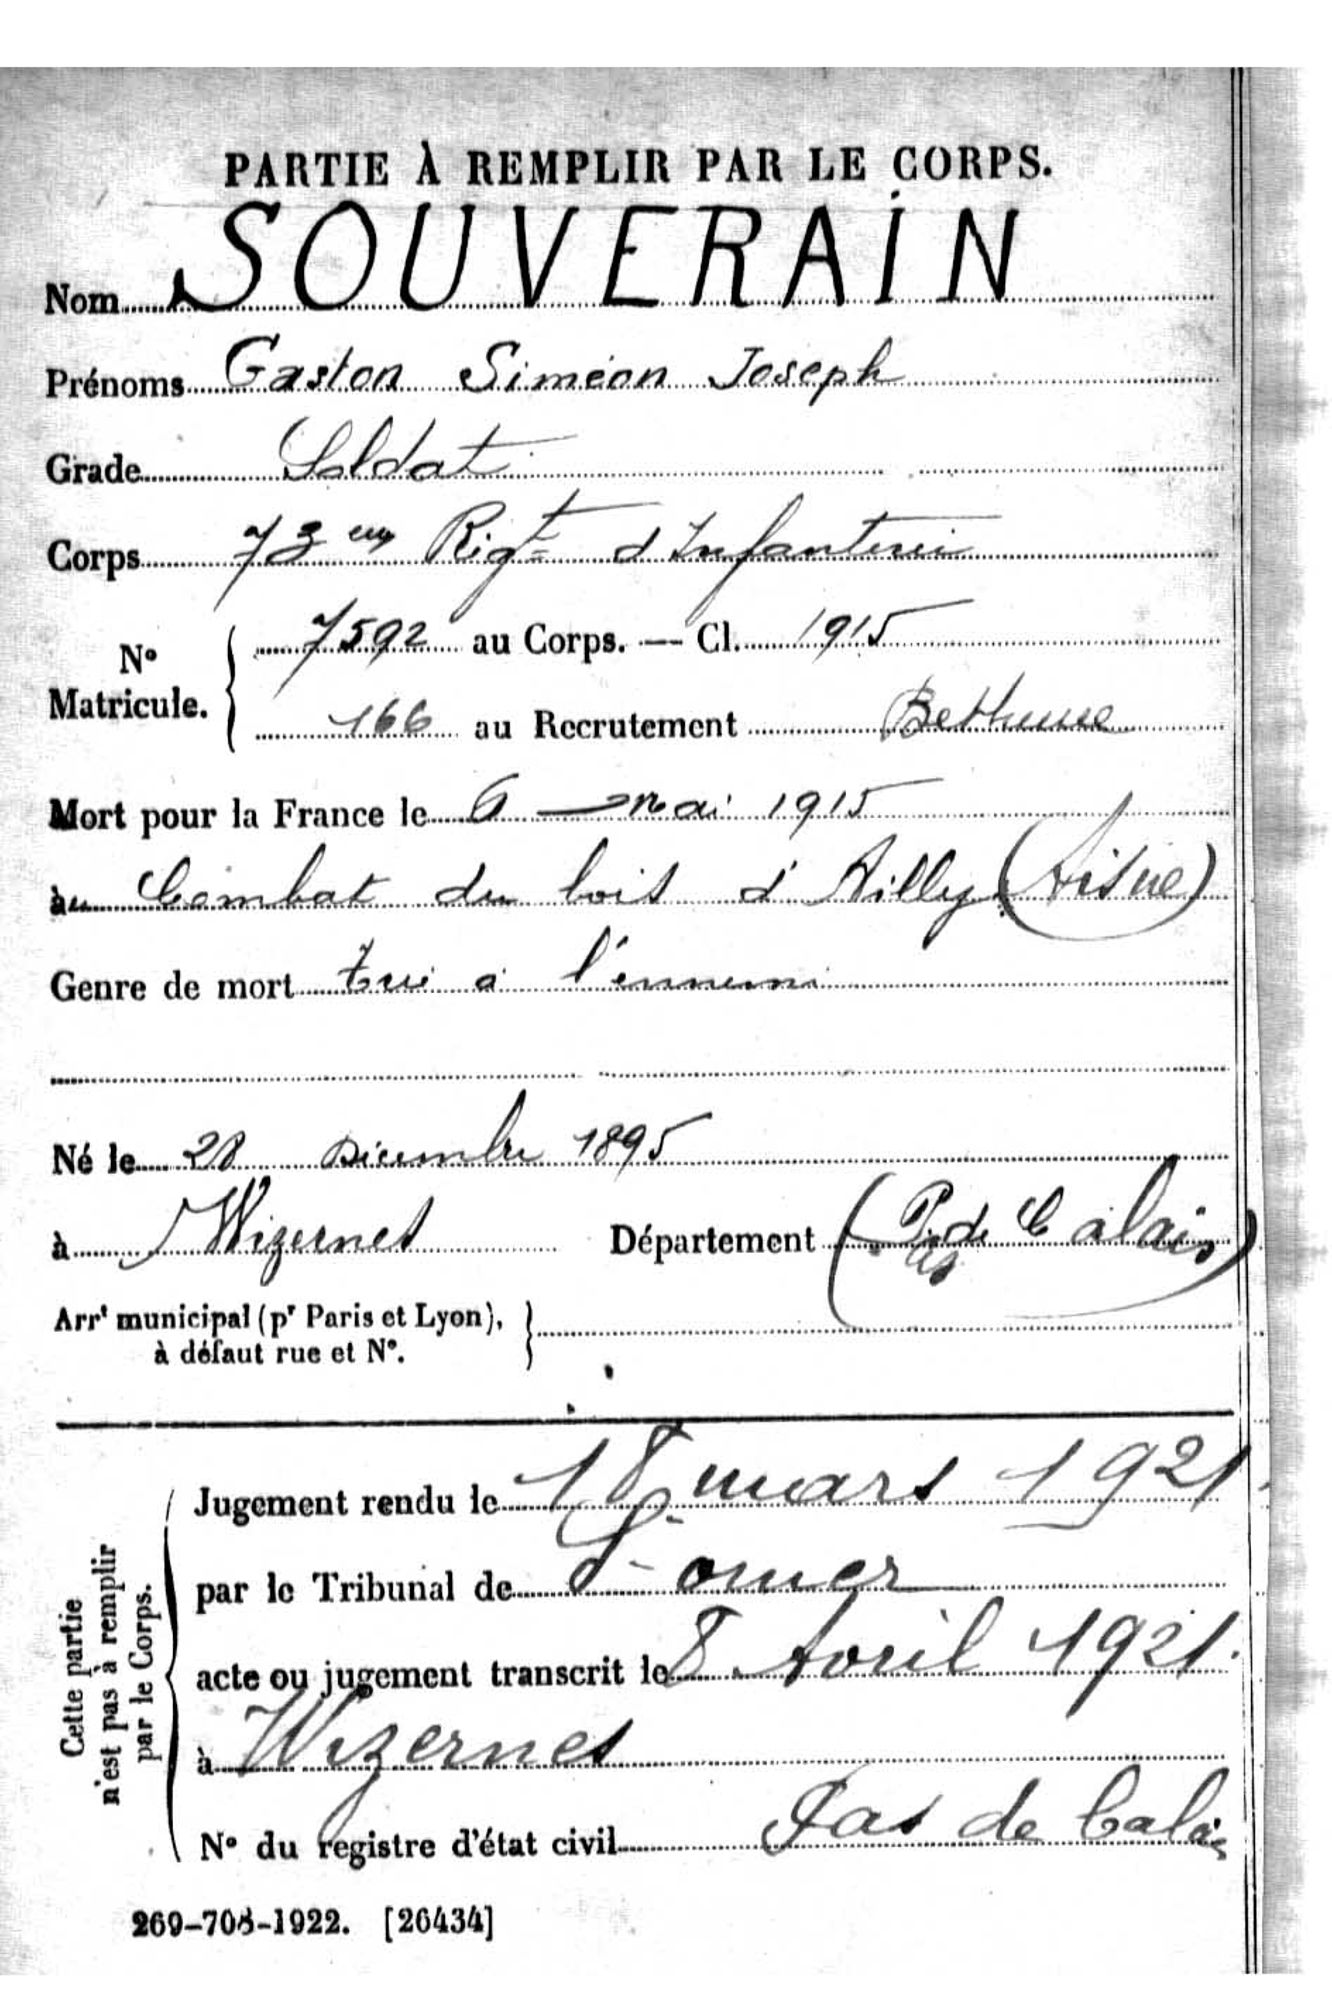 PARTIE À REMPLIR PAR LE CORPS.
Nom SOUVERAIN
Prénoms Gaston Siméon Joseph
Grade Soldat
Corps 73em Rigt d'Infanterie
N° Matricule.
7592 au Corps. — Cl. 1915
166 au Recrutement Bethune
Mort pour la France le 6 mai 1915
au Combat du bois d'Ailly (Aisne)
Genre de mort tué à l'ennemi
Né le 28 Décembre 1895
à Wizernes Département (Pas de Calais)
Arrt municipal (pr Paris et Lyon),
à défaut rue et N°.
Cette partie
n'est pas à remplir
par le Corps.
Jugement rendu le 18 mars 1921.
par le Tribunal de St-omer
acte ou jugement transcrit le 8 Avril 1921.
à Wizernes
N° du registre d'état civil Pas de Calais
269-708-1922. [26434]